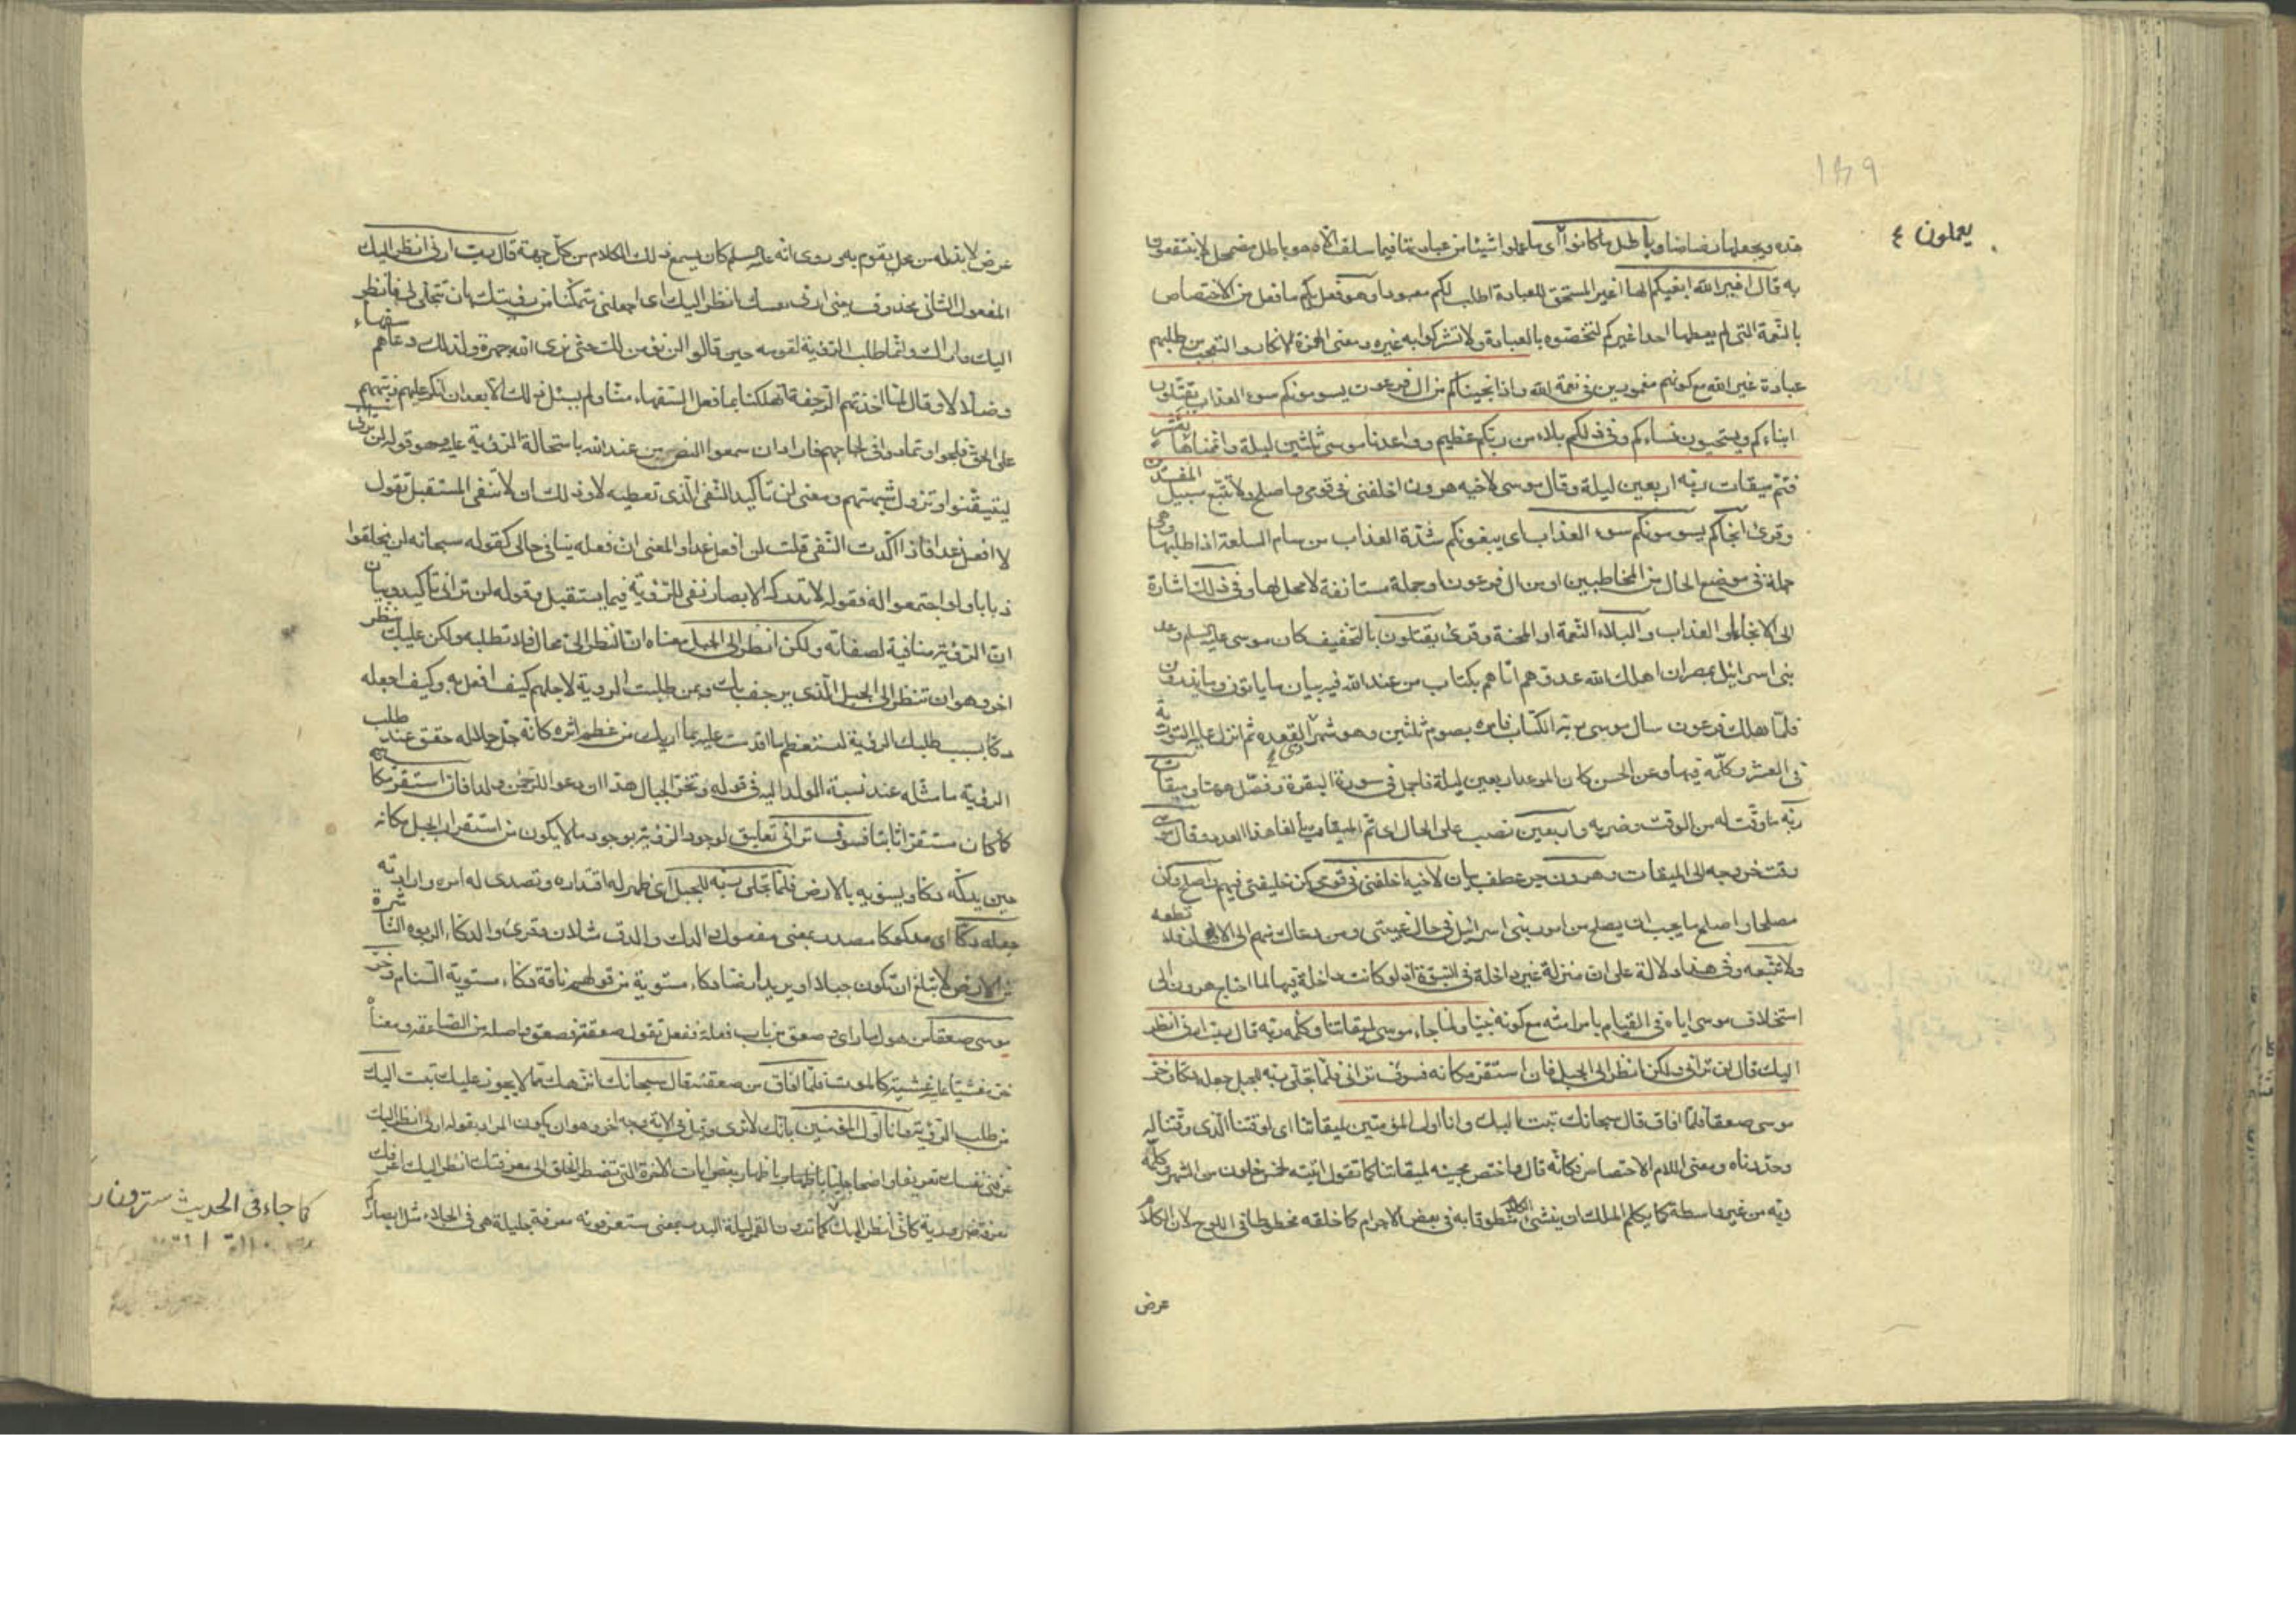 ١٣٩
يعملون ٤
هذه ويجعلها رضاضا وباطل ما كانوا اى ما عملوا شيئا من عبادتها فيما سلف الا وهو باطل مضمحل لا ينتفعون
به قال اغير الله ابغيكم الها اغير المستحق للعبادة اطلب لكم معبودا وهو فعل بكم ما فعل من الاختصاص
بالنعمة التى لم يعطها احدا غيركم لتختصوه بالعبادة ولا تشركوا به غيره ومعنى الهمزة الانكار والتعجب من طلبهم
عبادة غير الله مع كونهم مغمورين فى نعمة الله واذ انجيناكم من ال فرعون يسومونكم سوء العذاب يقتلون
ابناءكم ويستحيون نساءكم وفى ذلكم بلاء من ربكم عظيم وواعدنا موسى ثلثين ليلة واتممناها بعشر
فتم ميقات ربه اربعين ليلة وقال موسى لاخيه هرون اخلفنى فى قومى واصلح ولا تتبع سبيل المفسدين
وقرئ انجاكم يسومونكم سوء العذاب اى يبغونكم شدة العذاب من سام السلعة اذا طلبها وهى
جملة فى موضع الحال من المخاطبين او من ال فرعون او جملة مستانفة لا محل لها وفى ذلك اشارة
الى الانجاء او العذاب والبلاء النعمة او المحنة وقرئ يقتلون بالتخفيف كان موسى عليه السلم وعد
بنى اسرائيل بمصر ان اهلك الله عدوهم اتاهم بكتاب من عند الله فيه بيان ما ياتون وما يذرون
فلما هلك فرعون سال موسى ربه الكتاب فامره بصوم ثلثين وهو شهر ذى القعده ثم انزل عليه التورية
فى العشر وكلمه فيها وعن الحسن كان الموعد اربعين ليلة فاجمل فى سورة البقرة وفصل ههنا وميقات
ربه ما وقت له من الوقت وضربه واربعين نصب على الحال اى تم الميقات بالغا هذا العدد وقال موسى
وقت خروجه الى الميقات وهرون جر عطف بيان لاخيه اخلفنى فى قومى كن خليفتى فيهم واصلح وكن
مصلحا او اصلح ما يجب ان يصلح من امور بنى اسرائيل فى حال غيبتى ومن دعاك منهم الى الافساد فلا تطعه
ولا تتبعه وفى هذا دلالة على ان منزلة غير داخلة فى النبوة اذ لو كانت داخلة فيها لما احتاج هرون الى
استخلاف موسى اياه فى القيام بامر امته مع كونه نبيا ولما جاء موسى لميقاتنا وكلمه ربه قال رب ارنى انظر
اليك قال لن ترانى ولكن انظر الى الجبل فان استقر مكانه فسوف ترانى فلما تجلى ربه للجبل جعله دكا وخر
موسى صعقا فلما افاق قال سبحانك تبت اليك وانا اول المؤمنين لميقاتنا اى لوقتنا الذى وقتنا له
وحددناه ومعنى اللام الاختصاص فكانه قال واختص مجيئه لميقاتنا كما تقول اتيته لخمس خلون من الشهر وكلمه
ربه من غير واسطة كما يكلم الملك ان ينشئ الكلام منطوقا به فى بعض الاجرام كما خلقه مخطوطا فى اللوح لان الكلام
عرض
عرض لا بد له من محل يقوم به وروى انه عليه السلم كان يسمع ذلك الكلام من كل جهة قال رب ارنى انظر اليك
المفعول الثانى محذوف يعنى ارنى نفسك انظر اليك اى اجعلنى متمكنا من رؤيتك بان تتجلى لى فانظر
اليك واراك وانما طلب الرؤية لقومه حين قالوا لن نؤمن لك حتى نرى الله جهرة ولذلك دعاهم سفهاء
وضلالا وقال لما اخذتهم الرجفة اتهلكنا بما فعل السفهاء منا ولم يسئل ذلك الا بعد ان انكر عليهم ونبههم
على الحق فلجوا وتمادوا فى لجاجهم فاراد ان يسمعوا النص من عند الله باستحالة الرؤية عليه وهو قوله لن ترانى
ليتيقنوا وتزول شبهتهم ومعنى لن تأكيد النفى الذى تعطيه لا وذلك ان لا تنفى المستقبل تقول
لا افعل غدا فاذا اكدت النفى قلت لن افعل غدا والمعنى ان فعله ينافى حالى كقوله سبحانه لن يخلقوا
ذبابا ولو اجتمعوا له فقوله لا تدركه الابصار نفى للرؤية فيما يستقبل وقوله لن ترانى تأكيد وبيان
ان الرؤية منافية لصفاته ولكن انظر الى الجبل معناه ان النظر الى محال فلا تطلبه ولكن عليك بنظر
اخر وهو ان تنظر الى الجبل الذى يرجف بك وبمن طلبت الرؤية لاجلهم كيف افعل به وكيف اجعله
دكا بسبب طلبك الرؤية لتستعظم ما اقدمت عليه بما اريك من عظم اثره كانه جل جلاله حقق عند طلب
الرؤية ما مثله عند نسبة الولد اليه فى قوله وتخر الجبال هدا ان دعوا للرحمن ولدا فان استقر مكانه
كما كان مستقرا ثابتا فسوف ترانى تعليق لوجود الرؤية بوجود ما لا يكون من استقرار الجبل مكانه
حين يدكه دكا ويسويه بالارض فلما تجلى ربه للجبل اى ظهر له اقتداره وتصدى له امره وارادته
جعله دكا اى مدكوكا مصدر بمعنى مفعول والدك والدق مثلان وقرئ والدكاء الربوة الناشزة
من الارض لا تبلغ ان تكون جبلا او يريد ارضا دكاء مستوية من قولهم ناقة دكاء مستوية السنام وخر
موسى صعقا من هول ما راى وصعق من باب فعلته ففعل تقول صعقته فصعق واصله من الصاعقة ومعناه
خر مغشيا عليه غشية كالموت فلما افاق من صعقته قال سبحانك انزهك مما لا يجوز عليك تبت اليك
من طلب الرؤية وانا اول المؤمنين بانك لا ترى وقيل فى الاية وجه اخر وهو ان يكون المراد بقوله ارنى انظر اليك
عرفنى نفسك تعريفا واضحا جليا باظهار بعض ايات الاخرة التى تضطر الخلق الى معرفتك انظر اليك اعرفك
معرفة ضرورية كانى انظر اليك كما ترون القمر ليلة البدر بمعنى ستعرفونه معرفة جليلة هى فى الجلاء مثل ابصاركم
كما جاء فى الحديث سترون ربكم